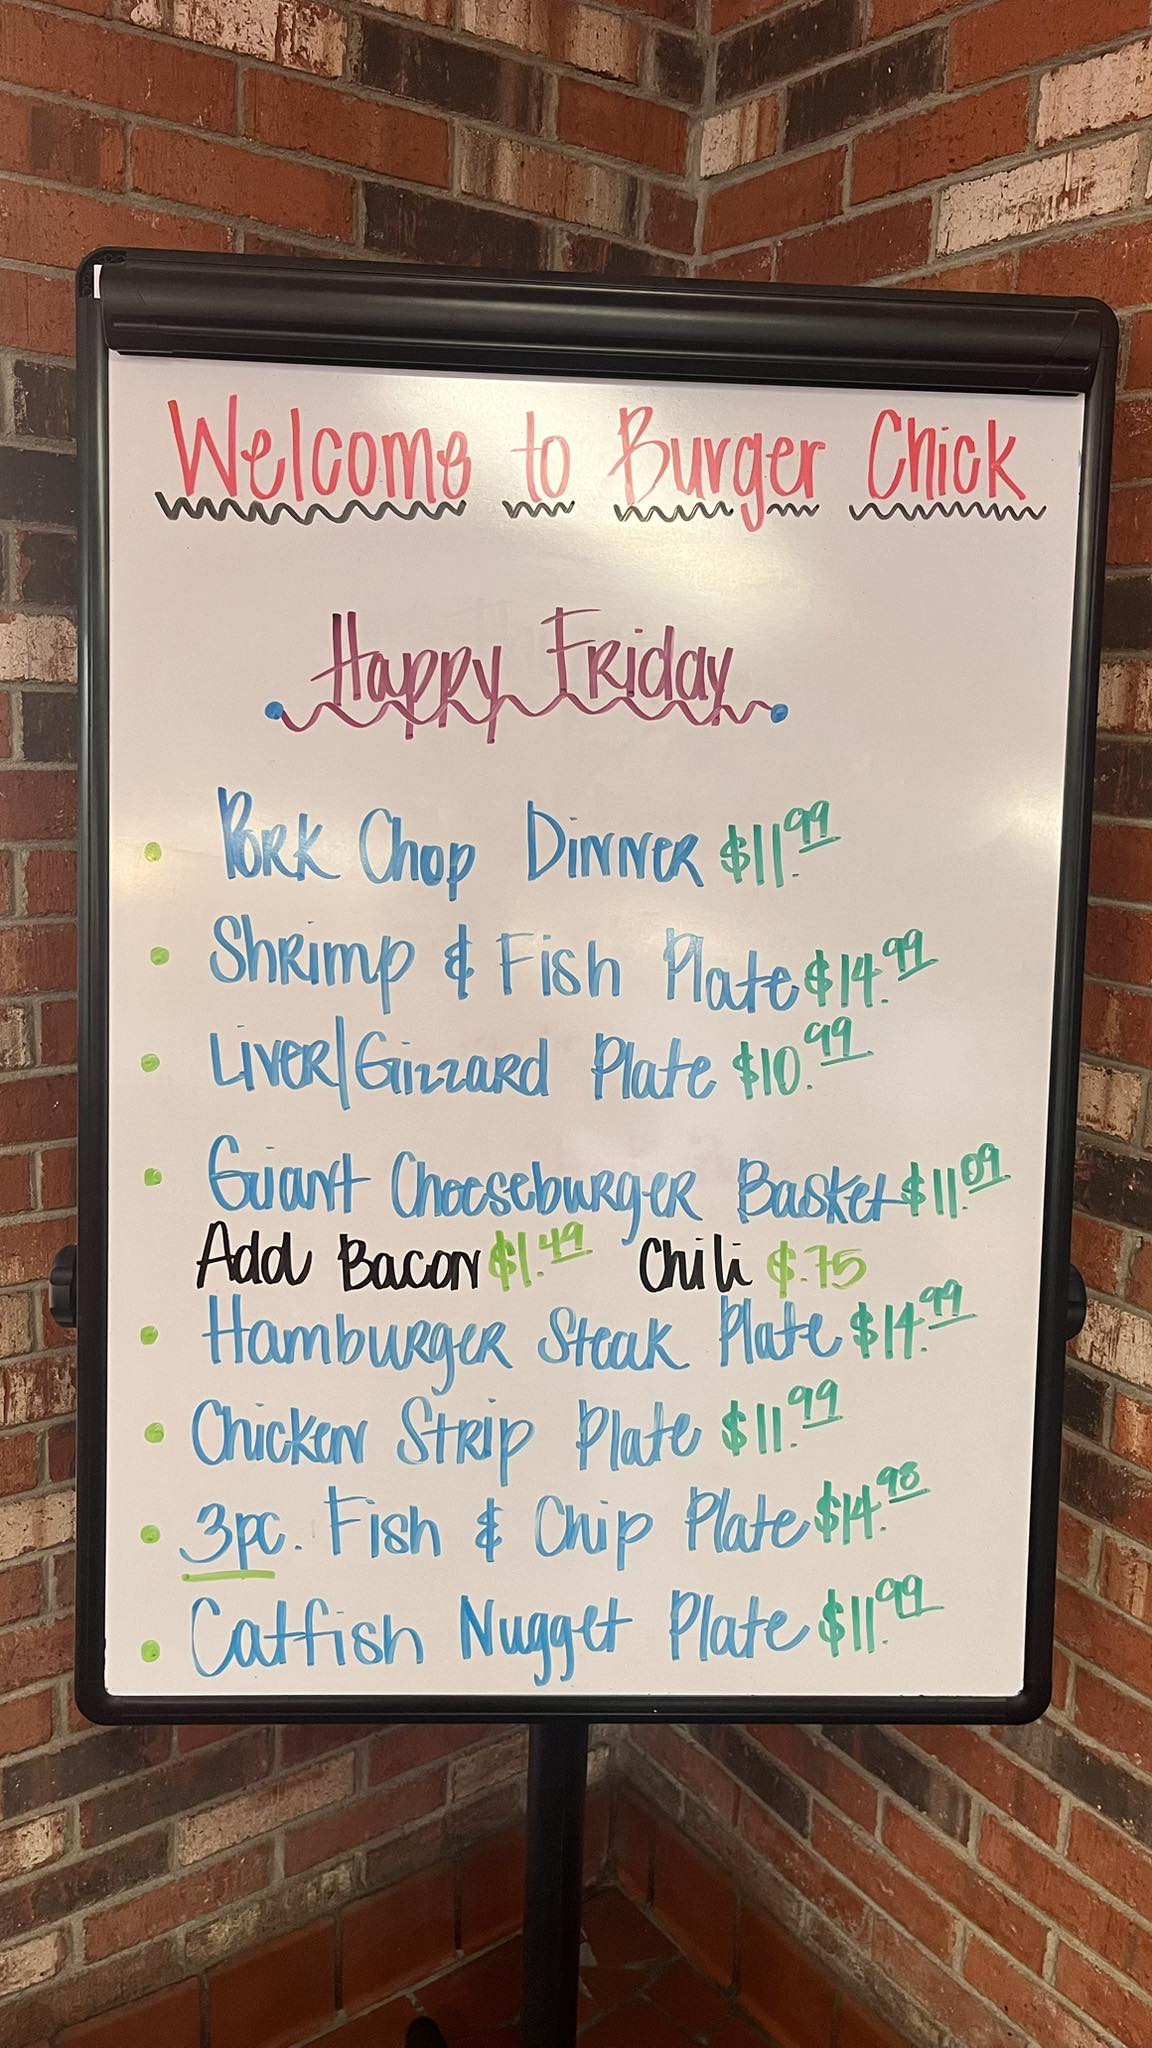 Welcome to Burger Chick
Happy Friday
• Pork Chop Dinner $11.99
• Shrimp & Fish Plate $14.99
• Liver/Gizzard Plate $10.99
• Giant Cheeseburger Basket $11.09
Add Bacon $1.49 Chili $.75
• Hamburger Steak Plate $14.99
• Chicken Strip Plate $11.99
• 3pc. Fish & Chip Plate $14.98
• Catfish Nugget Plate $11.99